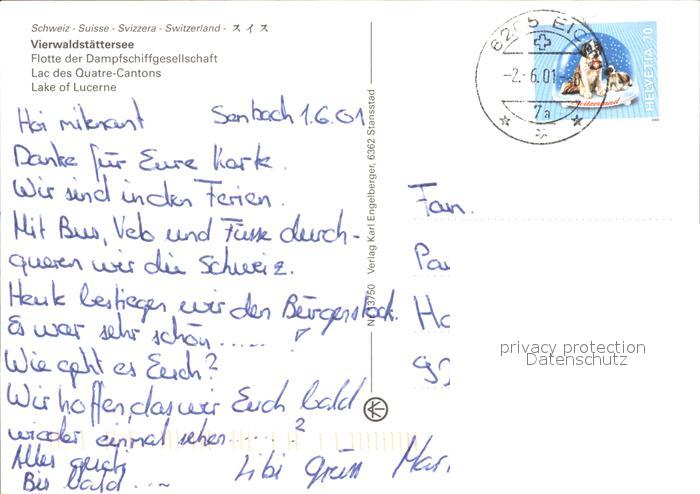 Schweiz - Suisse - Svizzera - Switzerland - スイス
Vierwaldstättersee
Flotte der Dampfschiffgesellschaft
Lac des Quatre-Cantons
Lake of Lucerne
Hoi mitenant Sembach 1.6.01
Danke für Eure Karte.
Wir sind in den Ferien.
Mit Bus, Velo und Füsse durch-
queren wir die Schweiz.
Heute besteigen wir den Bürgenstock.
Es war sehr schön .....
Wie geht es Euch?
Wir hoffen, das wir Euch bald
wieder einmal sehen ....?
Alles guete
Bis bald ...
Libi Grüss
Nr. 13750 Verlag Karl Engelberger, 6362 Stansstad
6205 EIC
-2.-6.01-
7a
HELVETIA 70
Switzerland
Fam.
Pau
Ha
privacy protection
Datenschutz